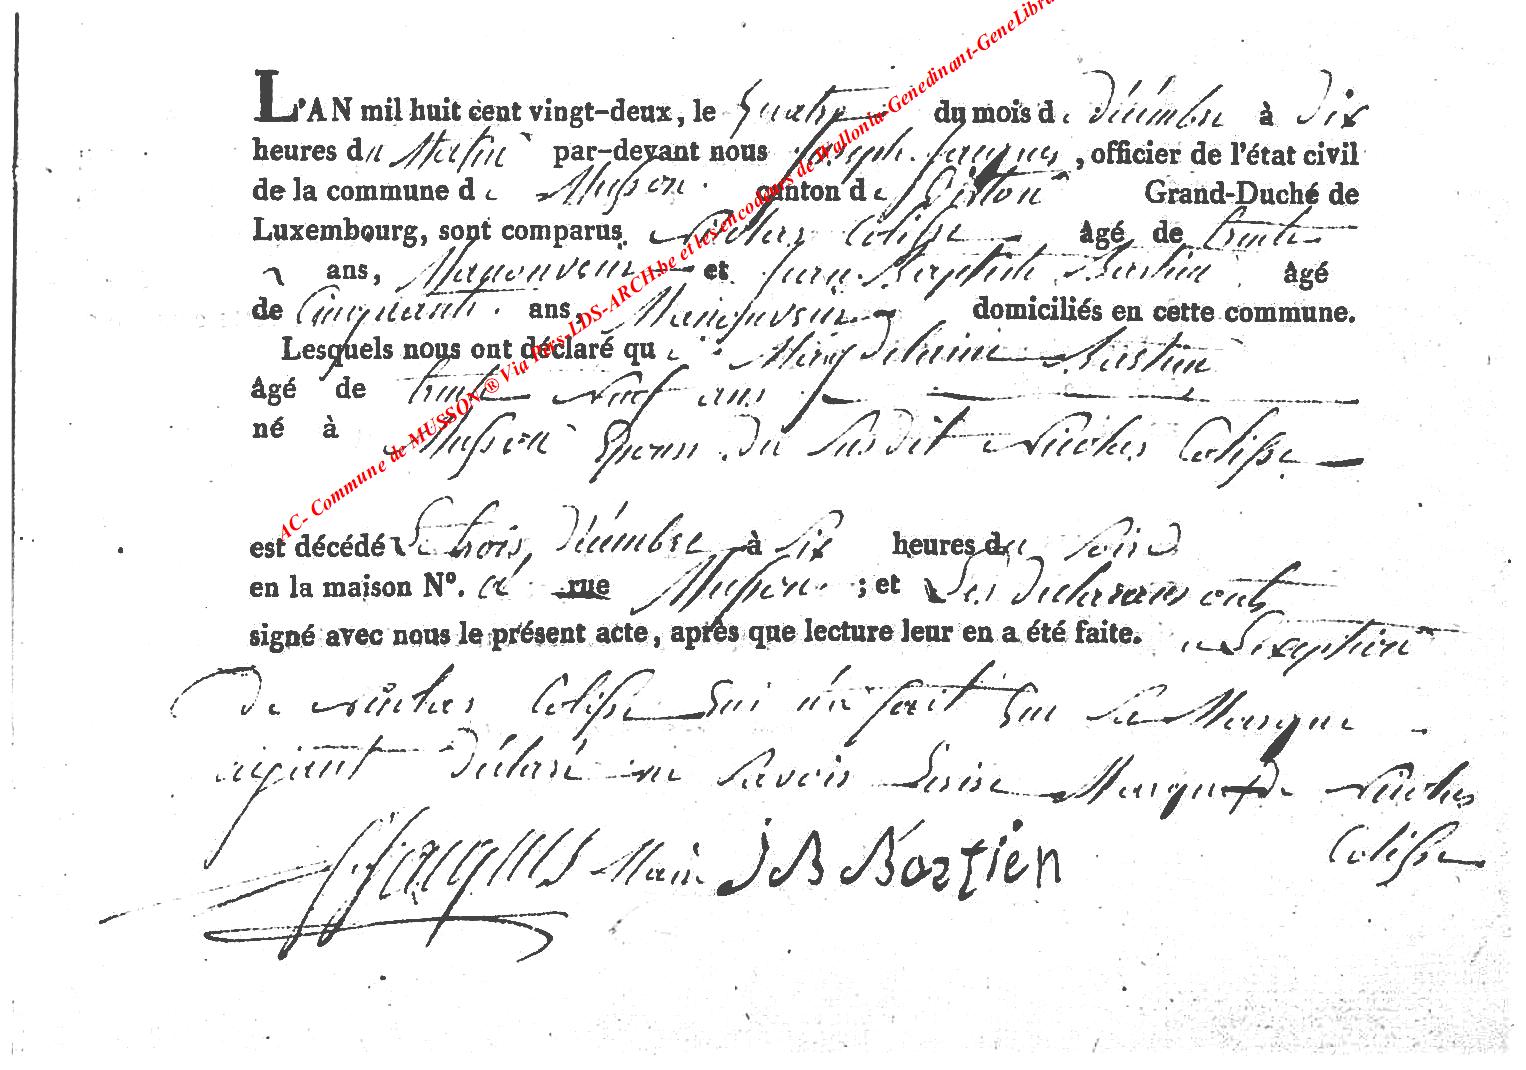 L'AN mil huit cent vingt-deux, le Quatre du mois de décembre à dix
heures du Matin par-devant nous Joseph Jacques, officier de l'état civil
de la commune de Musson canton de Virton Grand-Duché de
Luxembourg, sont comparus Nicolas Colisse âgé de trente
ans, Manouveur et Jean Baptiste Bastin âgé
de Cinquante ans, Manouveur domiciliés en cette commune.
Lesquels nous ont déclaré que Magdelaine Bastin
âgé de trente Neuf ans
né à Musson Epouse du susdit Nicolas Colisse
est décédé le trois décembre à six heures du soir
en la maison N°. à rue Musson ; et Les déclarans onts
signé avec nous le présent acte, après que lecture leur en a été faite. a L'exception
de Nicolas Colisse qui n'a fait que sa Marque
aijant déclaré ne savoir Ecrire Marque + de Nicolas
Colisse
JJacques Maire J B Bastien
AC- Commune de MUSSON ® Via Pres-LDS-ARCH.be et les encodeurs de Wallonia-Genedinant-GeneLibra